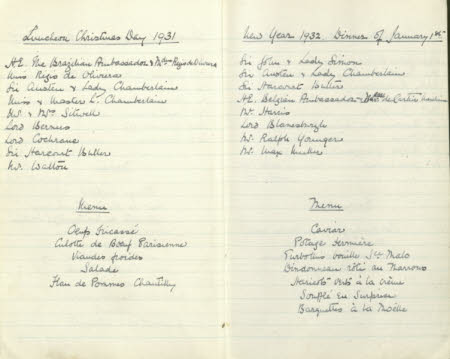 Luncheon Christmas Day 1931
H.E. The Brazilian Ambassador & Mme Regis de Oliveira
Miss Regis de Oliveira
Sir Austen & Lady Chamberlain
Miss & Master L. Chamberlain
Mr. & Mrs. Sitwell
Lord Berners
Lord Cochrane
Sir Harcourt Butler
Mr. Walton
Menu
Oeufs Fricassé
Culotte de Boeuf Parisienne
Viandes froides
Salade
Flan de Pommes Chantilly
New Year 1932. Dinner of January 1st
Sir John & Lady Simon
Sir Austen & Lady Chamberlain
Sir Harcourt Butler
H.E. Belgian Ambassador & de Cartier
Mr. Harris
Lord Blanesburgh
Mr. Ralph Younger
Mr. Max
Menu
Caviar
Potage Fermière
Turbotin St. Malo
Dindonneau rôti au Marrons
Haricots verts à la crème
Soufflé en Surprise
Barquettes à la Moëlle